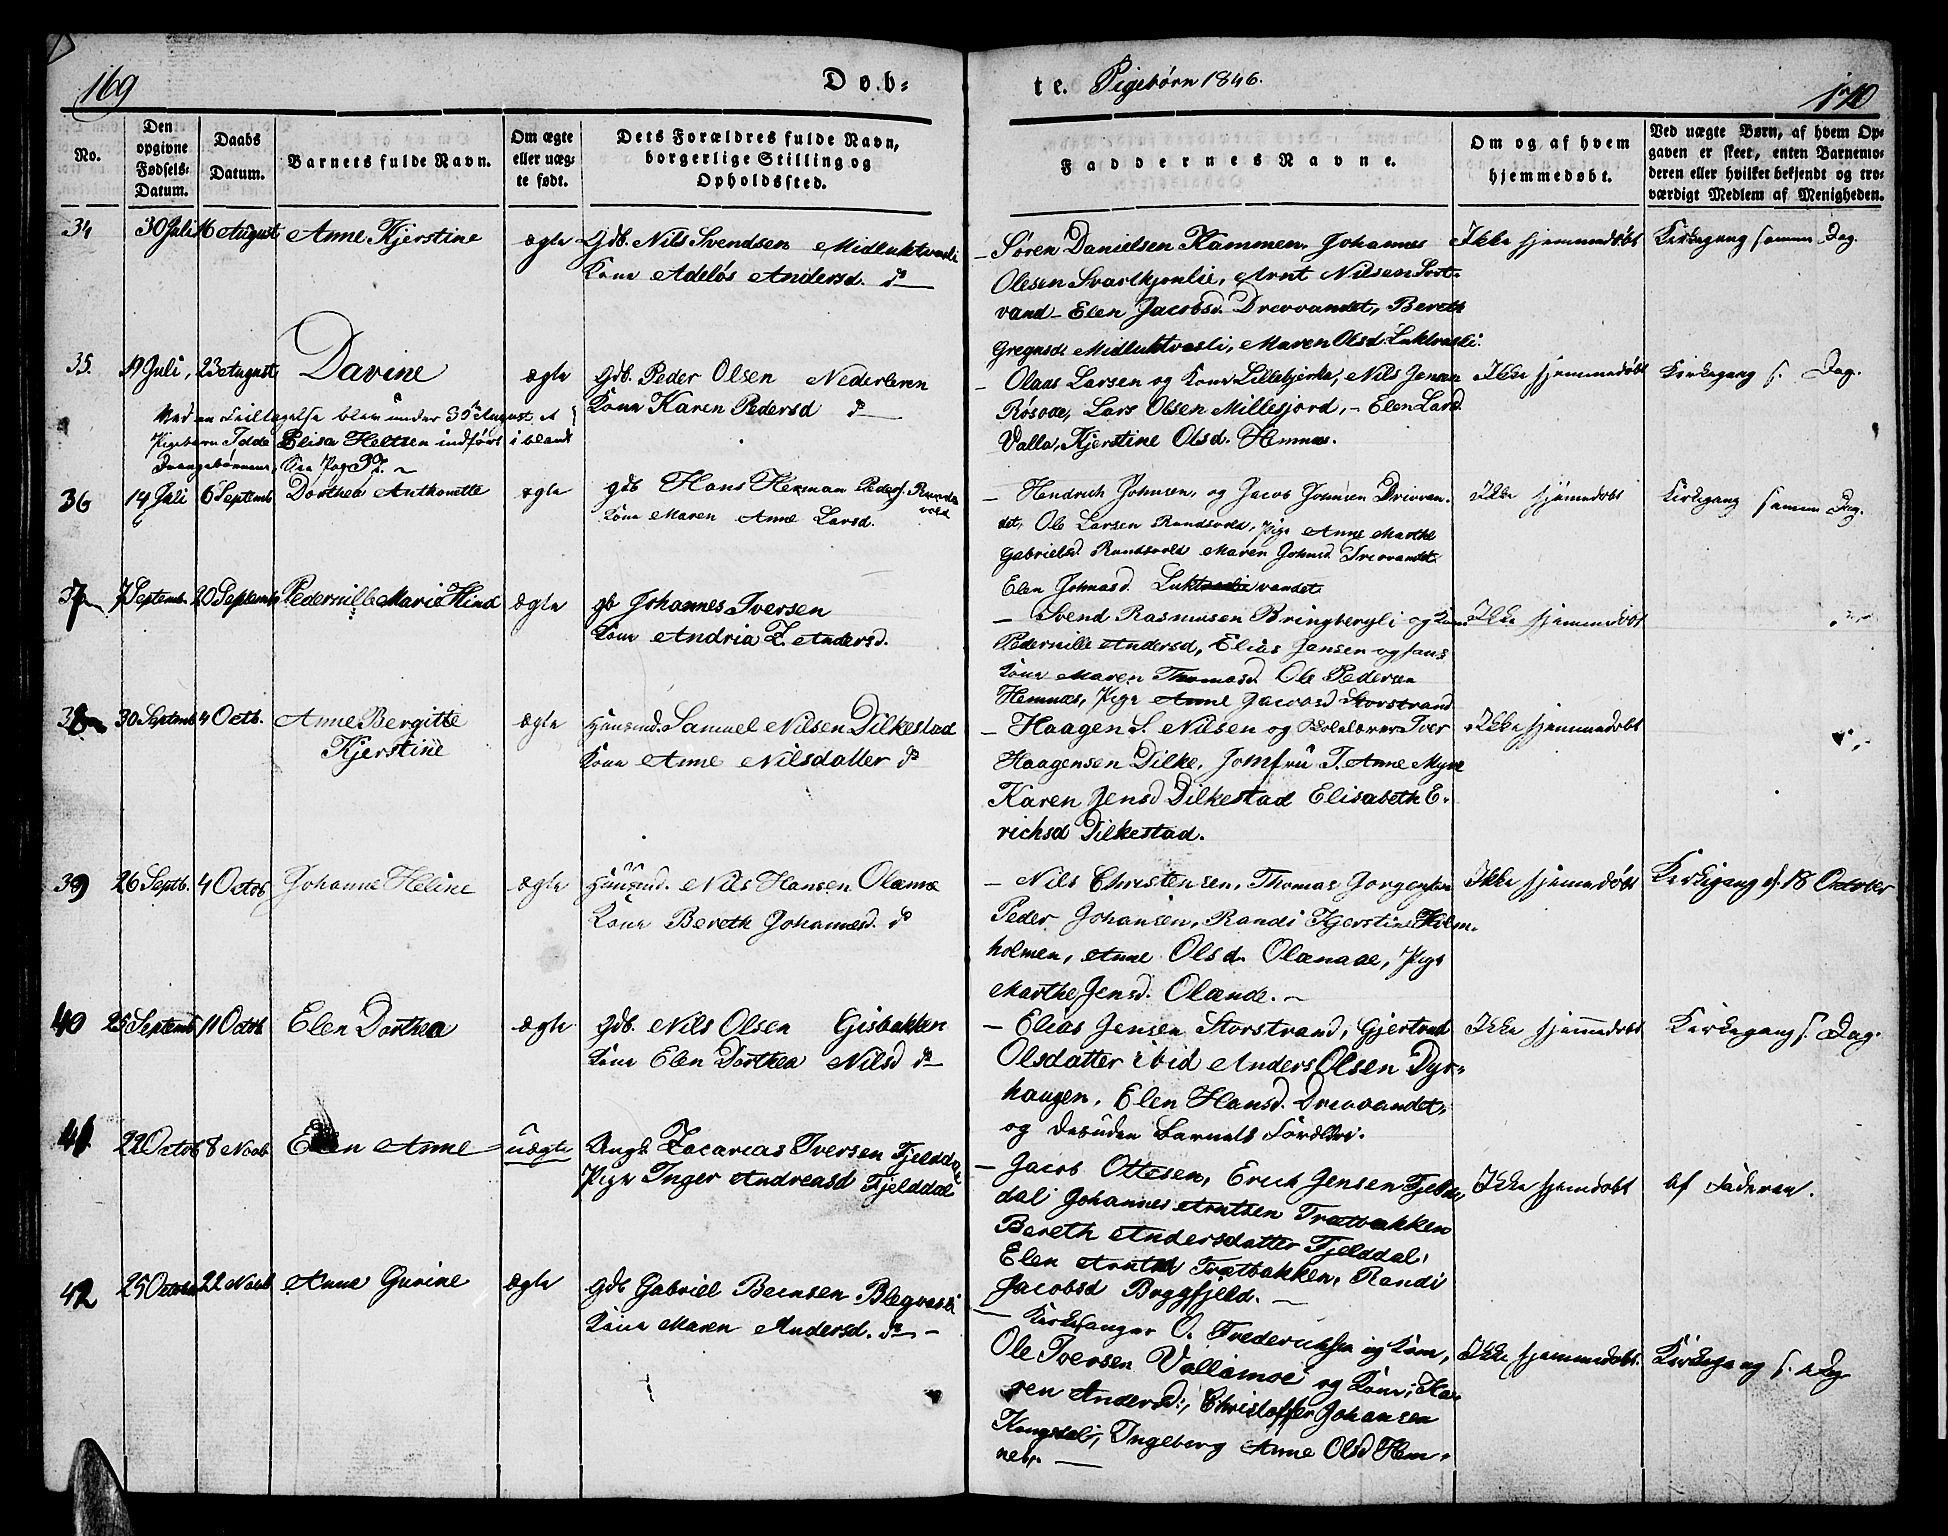 169
Døb-
te. Pigebørn 1846.
170
No.
Den opgivne Fødsels-Datum.
Daabs Datum.
Barnets fulde Navn.
Om ægte eller uæg-te født.
Dets Forældres fulde Navn, borgerlige Stilling og Opholdssted.
Faddernes Navne.
Om og af hvem hjemmedøbt.
Ved uægte Børn, af hvem Op-gaven er skeet, enten Barnemo-deren eller hvilket bekjendt og tro-værdigt Medlem af Menigheden.
34 30 Juli 16 August Anne Kjerstine ægte Gdb. Nils Svendsen Midluktvasli
Kone Adelös Andersd. do
– Søren Danielsen Kammen, Johannes
Olesen Svartkjønlie, Arnt Nilsen Sort-
vand – Elen Jacobsd. Drevvandet, Bereth
Gregusd. Midluktvasli, Maren Olsd Luktvasli.
Ikke hjemmedøbt Kirkegang samme Dag.
35. 19 Juli, 23 August Davine ægte Gdb. Peder Olsen Nederleren
Kone Karen Pedersd do
– Olaas Larsen og Kone Lillebjerka, Nils Jensen
Røsvoe, Lars Olsen Millesjord, – Elen Larsd
Valla, Kjerstine Olsd. Hemnæs.
Ikke hjemmedøbt Kirkegang s. Dag.
Ved en Feiltagelse blev under 30 August et
Pigebarn Elisa Heltsen indført iblandt
Drengebørnene, See Pag 37. –
36 14 Juli 6 Septemb Dorthea Anthonette ægte gdb Hans Herman Peders. Randsvold
Kone Maren Anne Larsd.
– Hendrich Johnsen, og Jacob Johnsen Drevvan-
det, Ole Larsen Randsvold, Pige Anne Marthe
Gabrielsd. Randsvold Maren Johnsd Drevvandet
Elen Johnasd. Luktvandet
Ikke hjemmedøbt Kirkegang samme Dag.
37 7 Septemb. 20 Septemb Pedernille Marie Hind ægte gb Johannes Iversen
Kone Andria Z. Andersd.
– Svend Rasmusen Bringbergli og Kone
Pedernille Andersd, Elias Jensen og hans
Kone Maren Thomasd. Ole Pedersen
Hemnæs, Pige Anne Jacobsd Storstrand
Ikke hjemmedøbt
38 30 Septemb 4 Octb. Anne Bergitte ægte Huusmd. Samuel Nilsen Dilkestad
Kjerstine
Kone Anne Nilsdatter do
– Haagen S. Nilsen og Skolelærer Iver
Haagensen Dilke, Jomfru J. Anne Myre
Karen Jensd Dilkestad Elisabeth E-
richsd Dilkestad.
Ikke hjemmedøbt
39 26 Septb. 4 Octob Johanne Heline ægte Huusmd. Nils Hansen Olanæ
Kone Bereth Johannesd. do
– Nils Christensen, Thomas Jørgensen
Peder Johansen, Randi Kjerstine Holm-
holmen, Anne Olsd. Olanaæ, Pige
Marthe Jensd. Olande. –
Ikke hjemmedøbt Kirkegang d. 18 October
40 25 Septemb 11 Octob Elen Dorthea ægte Gdb. Nils Olsen Gisbakken
Kone Elen Dorthea Nilsd do
– Elias Jensen Storstrand, Gjertrud
Olsdatter ibid Anders Olsen Dyr-
haugen, Elen Hansd. Drevvandet,
og desuden Barnets Forældre.
Ikke hjemmedøbt Kirkegang s. Dag.
41 22 Octob 8 Novb Elen Anne uægte Ungk. Zacarias Iversen Fjelddal
Pige Inger Andreasd Fjelddal
– Jacob Ottesen, Erich Jensen Fjeld-
dal Johannes Arntsen Trætbakken
Bereth Andersdatter Fjelddal,
Elen Arntsd Trætbakken, Randi
Jacobsd Bryggfjeld. –
Ikke hjemmedøbt af Faderen.
42 25 Octob 22 Novb Anne Gurine ægte gdb Gabriel Bensen Blegvasli
Kone Maren Andersd. do –
– Kirkesanger O. Frederiksen og Kone,
Ole Iversen Vallamoe og Kone, Ka-
ren Andersd., Christoffer Johansen
Kongsdal, Ingeborg Anne Olsd Hem-
nes. –
Ikke hjemmedøbt. Kirkegang s. Dag